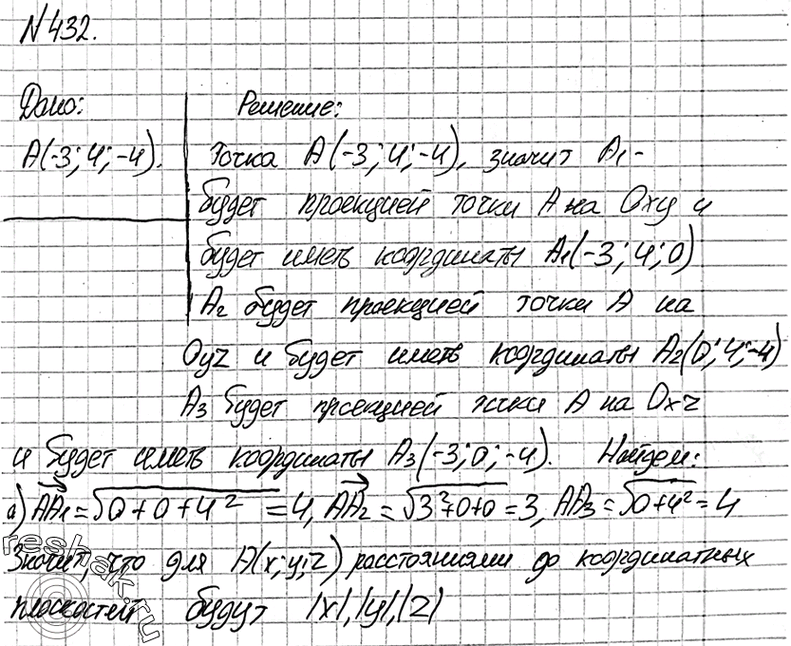 №432.
Дано: Решение:
A(-3; 4; -4). Точка A(-3; 4; -4), значит A₁ -
будет проекцией точки A на Oxy и
будет иметь координаты A₁(-3; 4; 0)
A₂ будет проекцией точки A на
Oyz и будет иметь координаты A₂(0; 4; -4)
A₃ будет проекцией точки A на Oxz
и будет иметь координаты A₃(-3; 0; -4). Найдем:
а) AA₁ = √0+0+4² = 4, AA₂ = √3²+0+0 = 3, AA₃ = √0+4² = 4
Значит, что для A(x; y; z) расстояниями до координатных
плоскостей будут |x|, |y|, |z|
reshak.ru